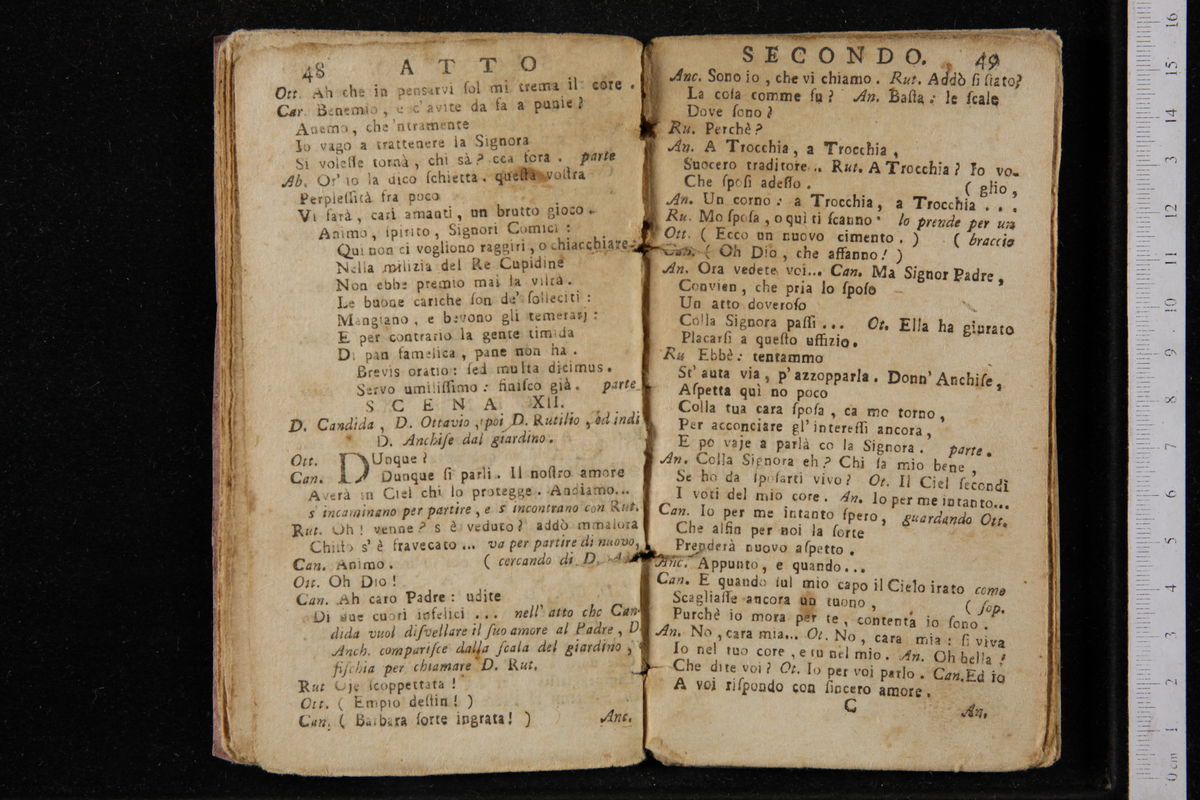 48 ATTO
Ott. Ah che in pensarvi sol mi trema il core.
Car. Benemio, e c'avite da fa a punie?
Anemo, che 'ntramente
Io vago a trattenere la Signora
Si volesse tornà, chi sà? cca fora. parte
Ab. Or' io la dico schietta. questa vostra
Perplessità fra poco
Vi farà, cari amanti, un brutto gioco.
Animo, spirito, Signori Comici:
Qui non ci vogliono raggiri, o chiacchiare:
Nella milizia del Re Cupidine
Non ebbe premio mai la viltà.
Le buone cariche son de' solleciti:
Mangiano, e bevono gli temerarj:
E per contrario la gente timida
Di pan famelica, pane non ha.
Brevis oratio: sed multa dicimus.
Servo umilissimo: finisco già. parte
SCENA XII.
D. Candida, D. Ottavio, poi D. Rutilio, ed indi
D. Anchise dal giardino.
Ott. DUnque?
Can. Dunque si parli. Il nostro amore
Averà in Ciel chi lo protegge. Andiamo...
s' incaminano per partire, e s' incontrano con Rut.
Rut. Oh! venne? s' è veduto? addò mmalora
Chisto s' è fravecato... va per partire di nuovo,
Can. Animo. ( cercando di D.
Ott. Oh Dio!
Can. Ah caro Padre: udite
Di due cuori infelici ... nell' atto che Can-
dida vuol disvellare il suo amore al Padre, D.
Anch. comparisce dalla scala del giardino,
fischia per chiamare D. Rut.
Rut Oje scoppettata!
Ott. ( Empio destin! )
Can. ( Barbara sorte ingrata! ) Anc.
SECONDO. 49
Anc. Sono io, che vi chiamo. Rut. Addò si stato?
La cosa comme fu? An. Basta: le scale
Dove sono?
Ru. Perchè?
An. A Trocchia, a Trocchia,
Suocero traditore.. Rut. A Trocchia? Io vo-
Che sposi adesso. ( glio,
An. Un corno: a Trocchia, a Trocchia ...
Ru. Mo sposa, o quì ti scanno. lo prende per un
Ott. ( Ecco un nuovo cimento. ) ( braccio
Can. ( Oh Dio, che affanno! )
An. Ora vedete voi... Can. Ma Signor Padre,
Convien, che pria lo sposo
Un atto doveroso
Colla Signora passi ... Ot. Ella ha giurato
Placarsi a questo uffizio.
Ru Ebbè: tentammo
St' auta via, p' azzopparla. Donn' Anchise,
Aspetta quì no poco
Colla tua cara sposa, ca mo torno,
Per acconciare gl' interessi ancora,
E po vaje a parlà co la Signora. parte.
An. Colla Signora eh? Chi sa mio bene,
Se ho da sposarti vivo? Ot. Il Ciel secondi
I voti del mio core. An. Io per me intanto...
Can. Io per me intanto spero, guardando Ott.
Che alfin per noi la sorte
Prenderà nuovo aspetto.
Anc. Appunto, e quando...
Can. E quando sul mio capo il Cielo irato come
Scagliasse ancora un tuono, ( sop.
Purchè io mora per te, contenta io sono.
An. No, cara mia... Ot. No, cara mia: si viva
Io nel tuo core, e tu nel mio. An. Oh bella!
Che dite voi? Ot. Io per voi parlo. Can. Ed io
A voi rispondo con sincero amore.
C An.